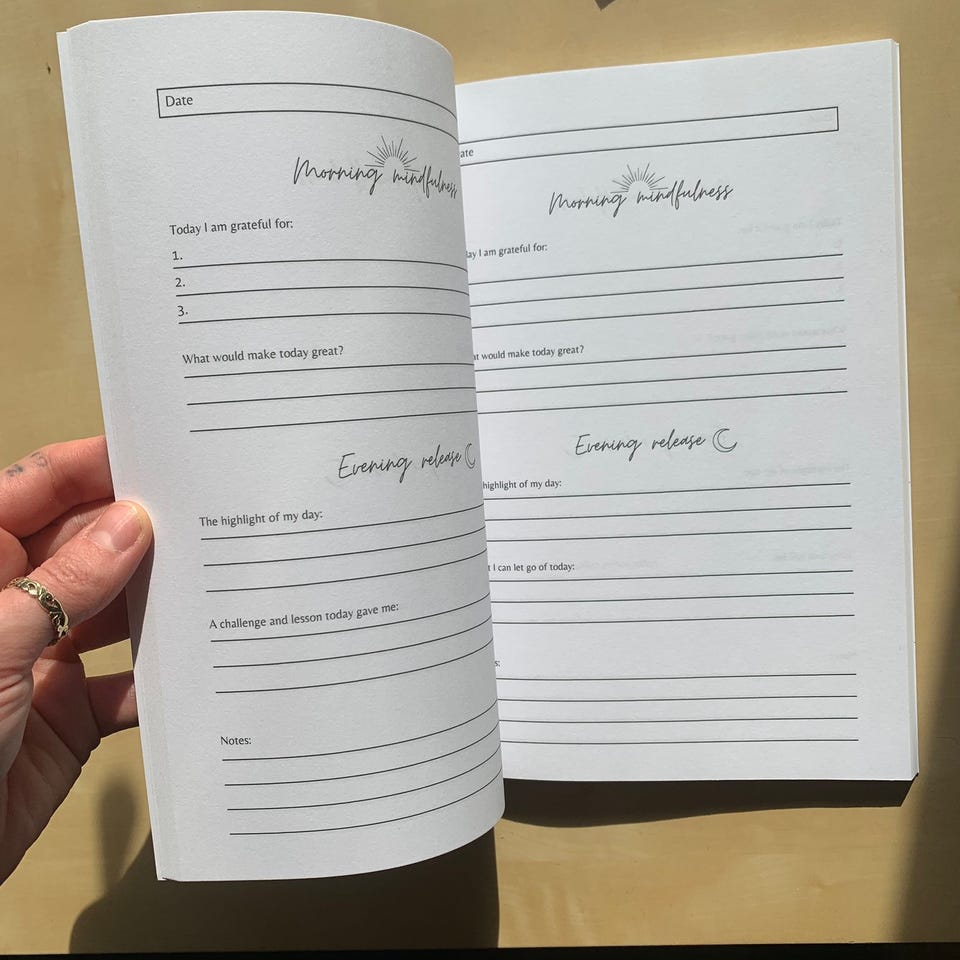 Date
Morning mindfulness
Today I am grateful for:
1.
2.
3.
What would make today great?
Evening release
The highlight of my day:
A challenge and lesson today gave me:
Notes:
ate
Morning mindfulness
ay I am grateful for:
would make today great?
Evening release
highlight of my day:
I can let go of today:
s: